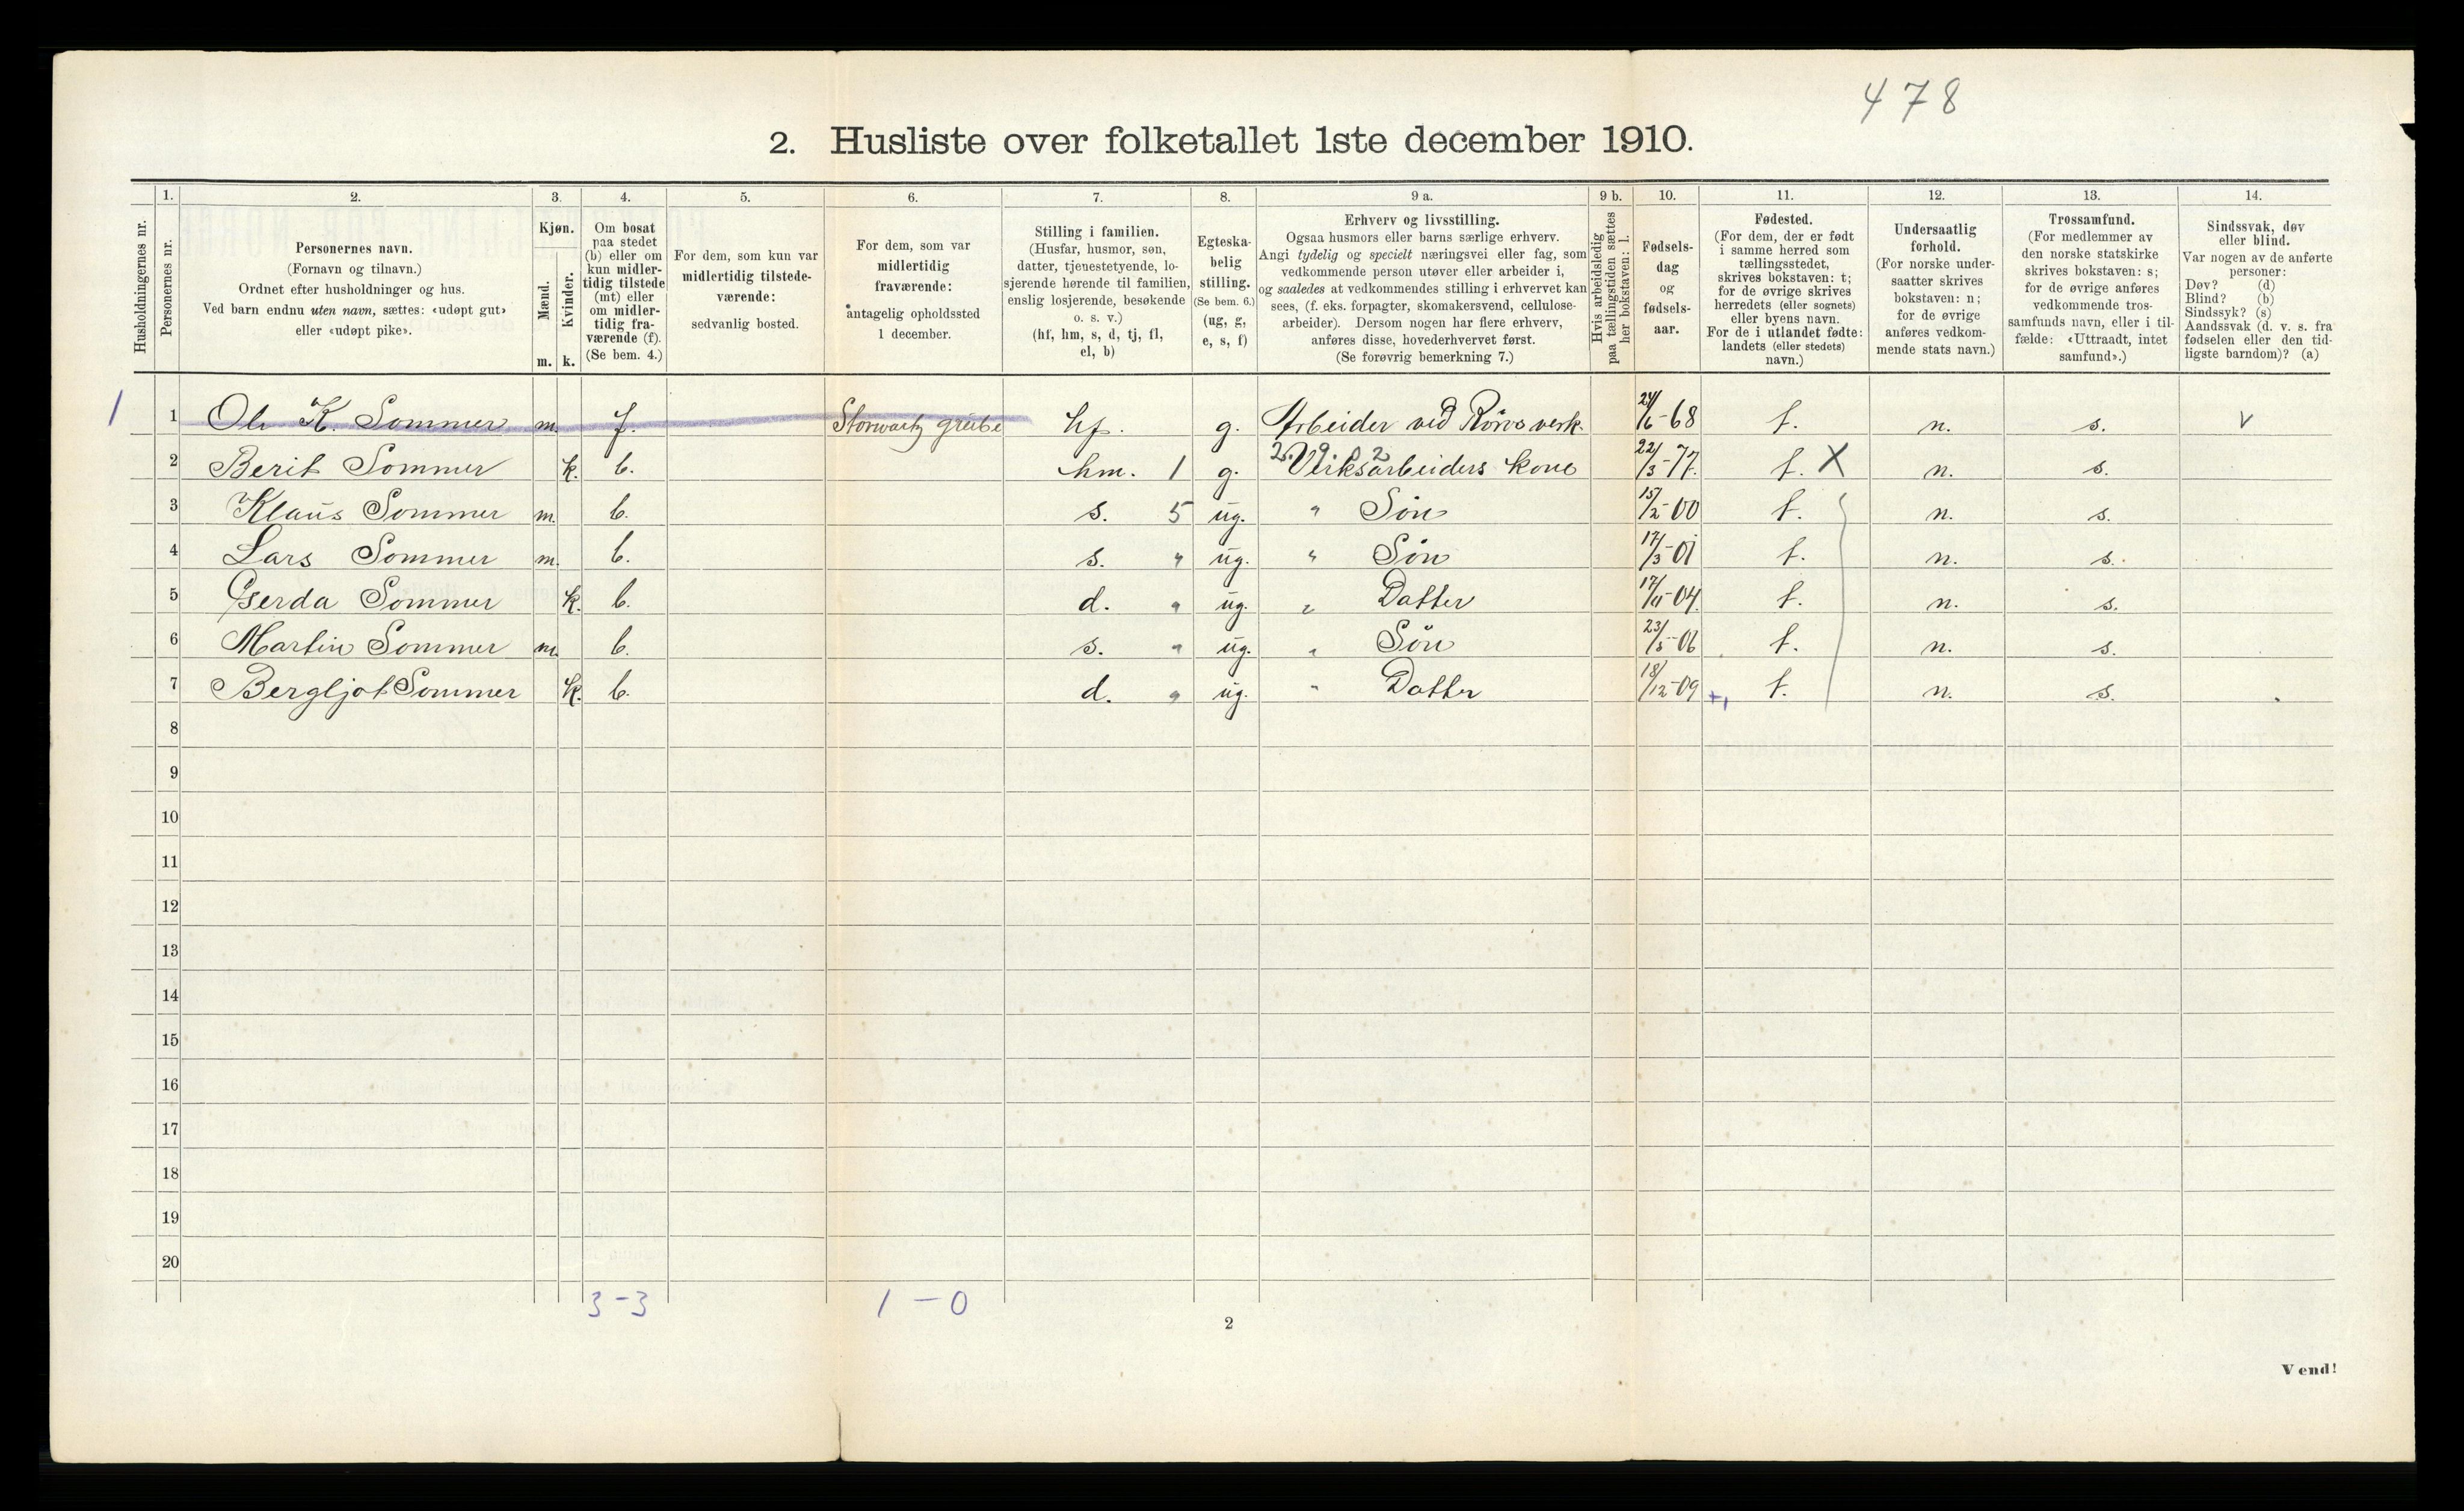 478
2. Husliste over folketallet 1ste december 1910.
Husholdningernes nr.
1.
Personernes nr.
2.
Personernes navn.
(Fornavn og tilnavn.)
Ordnet efter husholdninger og hus.
Ved barn endnu uten navn, sættes: «udøpt gut»
eller «udøpt pike».
3.
Kjøn.
Mænd.
m.
Kvinder.
k.
4.
Om bosat
paa stedet
(b) eller om
kun midler-
tidig tilstede
(mt) eller
om midler-
tidig fra-
værende (f).
(Se bem. 4.)
5.
For dem, som kun var
midlertidig tilstede-
værende:
sedvanlig bosted.
6.
For dem, som var
midlertidig
fraværende:
antagelig opholdssted
1 december.
7.
Stilling i familien.
(Husfar, husmor, søn,
datter, tjenestetyende, lo-
sjerende hørende til familien,
enslig losjerende, besøkende
o. s. v.)
(hf, hm, s, d, tj, fl,
el, b)
8.
Egteska-
belig
stilling.
(Se bem. 6.)
(ug, g,
e, s, f)
9 a.
Erhverv og livsstilling.
Ogsaa husmors eller barns særlige erhverv.
Angi tydelig og specielt næringsvei eller fag, som
vedkommende person utøver eller arbeider i,
og saaledes at vedkommendes stilling i erhvervet kan
sees, (f. eks. forpagter, skomakersvend, cellulose-
arbeider). Dersom nogen har flere erhverv,
anføres disse, hovederhvervet først.
(Se forøvrig bemerkning 7.)
9 b.
Hvis arbeidsledig
paa tællingstiden sættes
her bokstaven: l.
10.
Fødsels-
dag
og
fødsels-
aar.
11.
Fødested.
(For dem, der er født
i samme herred som
tællingsstedet,
skrives bokstaven: t;
for de øvrige skrives
herredets (eller sognets)
eller byens navn.
For de i utlandet fødte:
landets (eller stedets)
navn.)
12.
Undersaatlig
forhold.
(For norske under-
saatter skrives
bokstaven: n;
for de øvrige
anføres vedkom-
mende stats navn.)
13.
Trossamfund.
(For medlemmer av
den norske statskirke
skrives bokstaven: s;
for de øvrige anføres
vedkommende tros-
samfunds navn, eller i til-
fælde: «Uttraadt, intet
samfund».)
14.
Sindssvak, døv
eller blind.
Var nogen av de anførte
personer:
Døv? (d)
Blind? (b)
Sindssyk? (s)
Aandssvak (d. v. s. fra
fødselen eller den tid-
ligste barndom)? (a)
1 1 Ole K. Sommer m. f. Storwartz grube hf. g. Arbeider ved Röros verk. 24/6-68 t. n. s. v
2 Berit Sommer k. b. hm. 1 g. Verksarbeiders kone 22/3-77. t. X n. s.
3 Klaus Sommer m. b. s. 5 ug. " Sön 15/2-00 t. n. s.
4 Lars Sommer m. b. s. " ug. " Sön 17/3-01 t. n. s.
5 Gerda Sommer k. b. d. " ug. " Datter 17/11-04. t. n. s.
6 Martin Sommer m. b. s. " ug. " Sön 23/5-06 t. n. s.
7 Bergljot Sommer k. b. d. " ug. " Datter 18/12-09 t. n. s.
8
9
10
11
12
13
14
15
16
17
18
19
20
3-3 1-0
2
Vend!